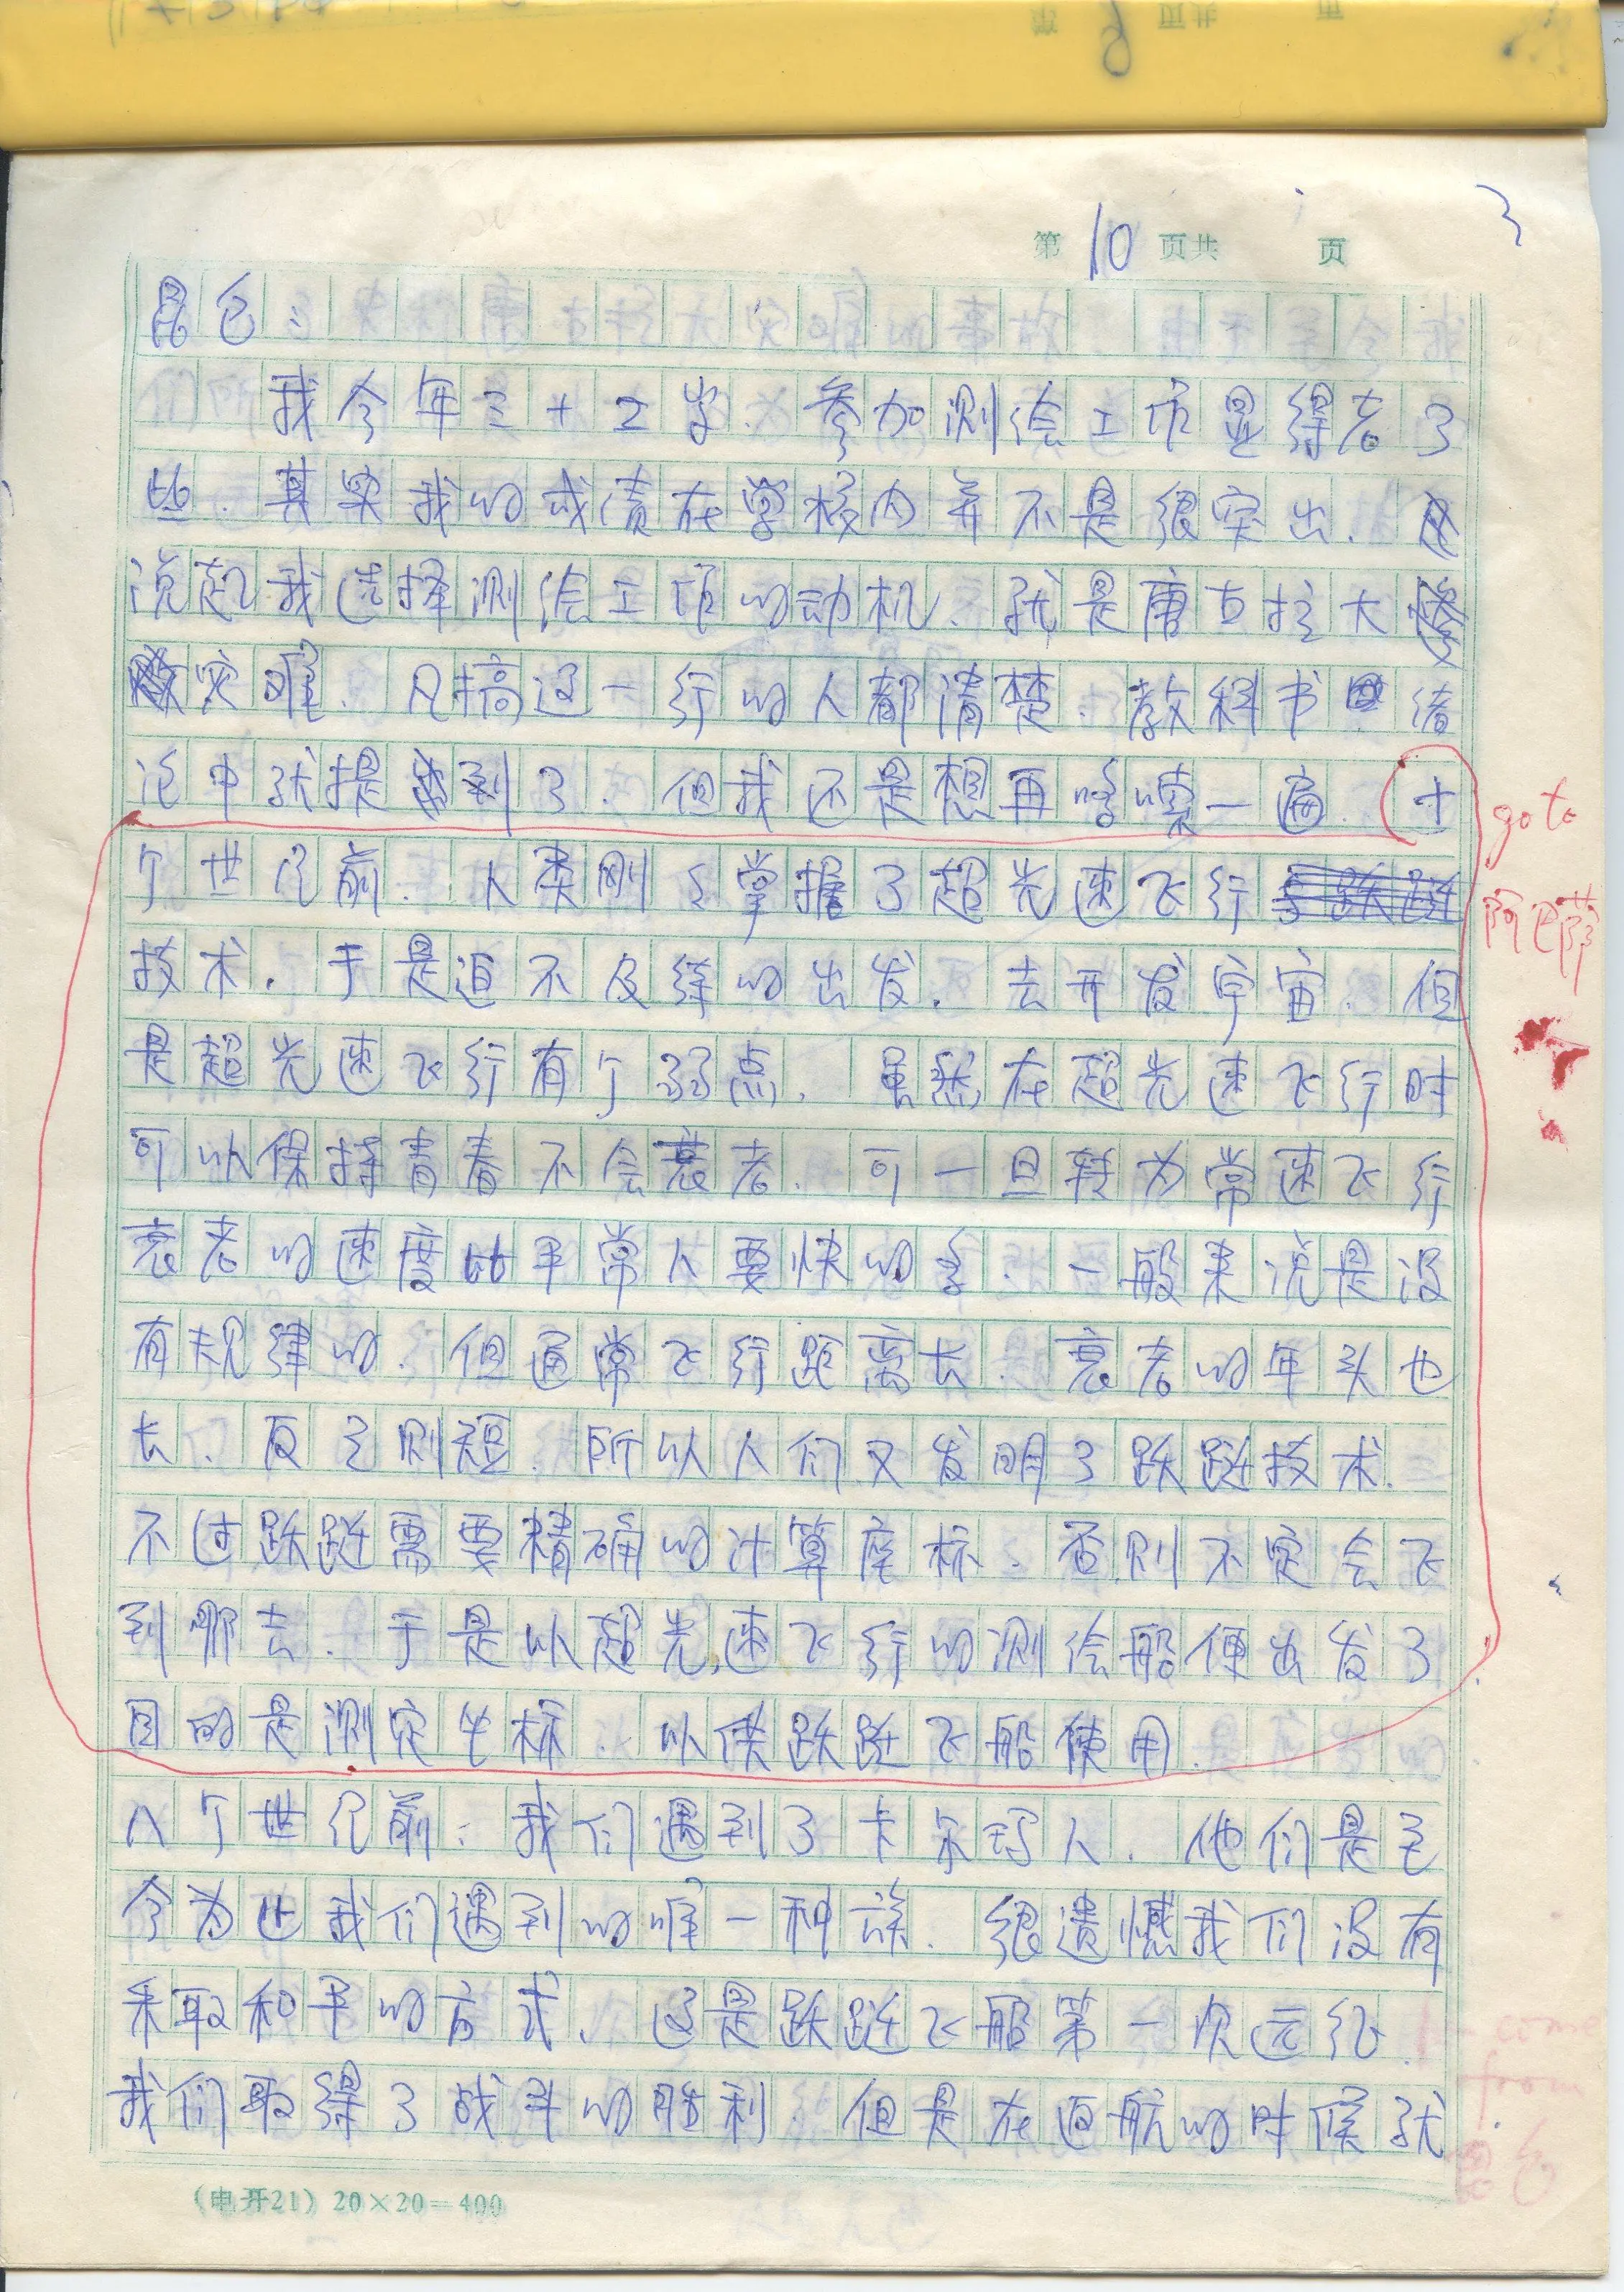 第10页共 页
昆仑：
我今年三十二岁、参加测绘工质显得老了
些．其实我的成绩在学校内并不是很突出．
说起我选择测绘工质的动机、就是唐古拉大
灾难．凡搞这一行的人都清楚．教科书绪
论中就提到了．但我还是想再啰嗦一遍．（十
个世纪前．人类刚刚掌握了超光速飞行
技术．于是迫不及待的出发．去开发宇宙．但
是超光速飞行有个弱点．虽然在超光速飞行时
可以保持青春不会衰老．可一旦转为常速飞行
衰老的速度比平常人要快的多．一般来说是没
有规律的．但通常飞行距离长．衰老的年头也
长．反之则短．所以人们又发明了跃跹技术．
不过跃跹需要精确的计算座标．否则不定会飞
到哪去．于是以超光速飞行的测绘船便出发了
目的是测定坐标．以供跃跹飞船使用．
八个世纪前．我们遇到了卡尔玛人．他们是至
今为止我们遇到的唯一种族．很遗憾我们没有
采取和平的方式、这是跃跹飞船第一次远征．
我们取得了战斗的胜利．但是在返航的时候就
go to
阿巴蒂
come
from
昆仑
(电开21) 20×20=400